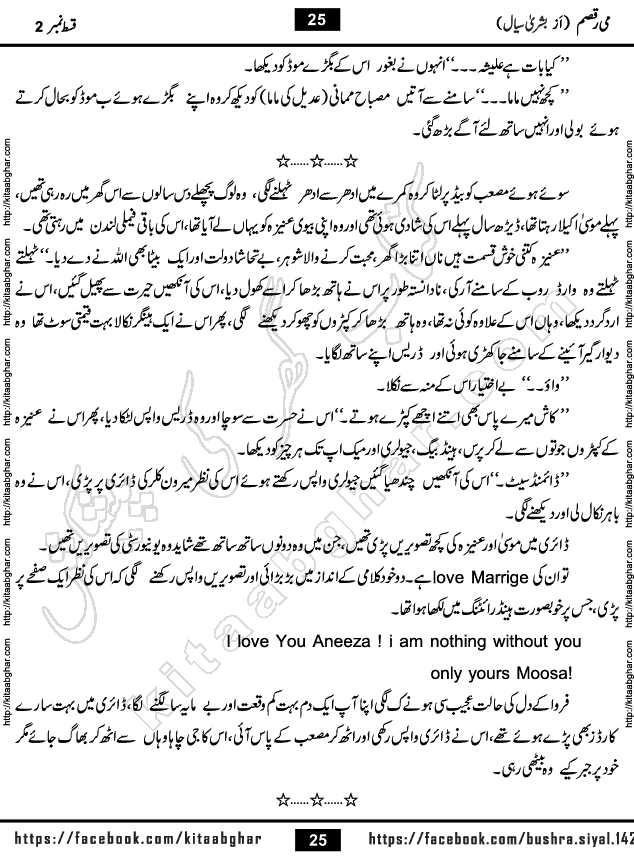 می رقصم (از بشریٰ سیال) 25 قسط نمبر 2
’’کیا بات ہے علیشہ ۔۔۔‘‘ انہوں نے بغور اس کے بگڑے موڈ کو دیکھا۔
’’کچھ نہیں ماما۔۔۔‘‘ سامنے سے آتیں مصباح ممانی (عدیل کی ماما) کو دیکھ کر وہ اپنے بگڑے ہوئے ب موڈ کو بحال کرتے
ہوئے بولی اور انہیں ساتھ لئے آگے بڑھ گئی۔
☆......☆......☆
سوئے ہوئے مصعب کو بیڈ پر لٹا کر وہ کمرے میں ادھر سے ادھر ٹہلنے لگی، وہ لوگ پچھلے دس سالوں سے اس گھر میں رہ رہی تھیں،
پہلے موسیٰ اکیلا رہتا تھا، ڈیڑھ سال پہلے اس کی شادی ہوئی تھی اور وہ اپنی بیوی عنیزہ کو یہاں لے آیا تھا، اس کی باقی فیملی لندن میں رہتی تھی۔
’’عنیزہ کتنی خوش قسمت ہیں ناں اتنا بڑا گھر، محبت کرنے والا شوہر، بے تحاشا دولت اور ایک بیٹا بھی اللہ نے دے دیا۔‘‘ ٹہلتے
ٹہلتے وہ وارڈ روب کے سامنے آ رکی، نا دانستہ طور پر اس نے ہاتھ بڑھا کر اسے کھول دیا، اس کی آنکھیں حیرت سے پھیل گئیں، اس نے
ارد گرد دیکھا، وہاں اس کے علاوہ کوئی نہ تھا، وہ ہاتھ بڑھا کر کپڑوں کو چھو کر دیکھنے لگی، پھر اس نے ایک ہینگر نکالا بہت قیمتی سوٹ تھا وہ
دیوار گیر آئینے کے سامنے جا کھڑی ہوئی اور ڈریس اپنے ساتھ لگایا۔
’’واؤ۔۔‘‘ بے اختیار اس کے منہ سے نکلا۔
’’کاش میرے پاس بھی اتنے اچھے کپڑے ہوتے۔‘‘ اس نے حسرت سے سوچا اور وہ ڈریس واپس لٹکا دیا، پھر اس نے عنیزہ
کے کپڑوں جوتوں سے لے کر پرس، ہینڈ بیگ، جیولری اور میک اپ تک ہر چیز کو دیکھا۔
’’ڈائمنڈ سیٹ۔‘‘ اس کی آنکھیں چندھیا گئیں جیولری واپس رکھتے ہوئے اس کی نظر میرون کلر کی ڈائری پر پڑی، اس نے وہ
باہر نکال لی اور دیکھنے لگی۔
ڈائری میں موسیٰ اور عنیزہ کی کچھ تصویریں پڑی تھیں، جن میں وہ دونوں ساتھ ساتھ تھے شاید وہ یونیورسٹی کی تصویریں تھیں۔
تو ان کی love Marrige ہے۔ دو خود کلامی کے انداز میں بڑبڑائی اور تصویریں واپس رکھنے لگی کہ اس کی نظر ایک صفحے پر
پڑی، جس پر خوبصورت ہینڈ رائٹنگ میں لکھا ہوا تھا۔
I love You Aneeza ! i am nothing without you
only yours Moosa!
فروا کے دل کی حالت عجیب سی ہونے ک لگی اپنا آپ ایک دم بہت کم وقعت اور بے مایہ سا لگنے لگا، ڈائری میں بہت سارے
کارڈز بھی پڑے ہوئے تھے، اس نے ڈائری واپس رکھی اور اٹھ کر مصعب کے پاس آئی، اس کا جی چاہا وہاں سے اٹھ کر بھاگ جائے مگر
خود پر جبر کیے وہ بیٹھی رہی۔
☆......☆......☆
https://facebook.com/kitaabghar 25 https://facebook.com/bushra.siyal.142
http://kitaabghar.com http://kitaabghar.com http://kitaabghar.com http://kitaabghar.com http://kitaabghar.com http://kitaabghar.com
http://kitaabghar.com http://kitaabghar.com http://kitaabghar.com http://kitaabghar.com http://kitaabghar.com http://kitaabghar.com
کتاب گھر کی پیشکش
kitaabghar.com